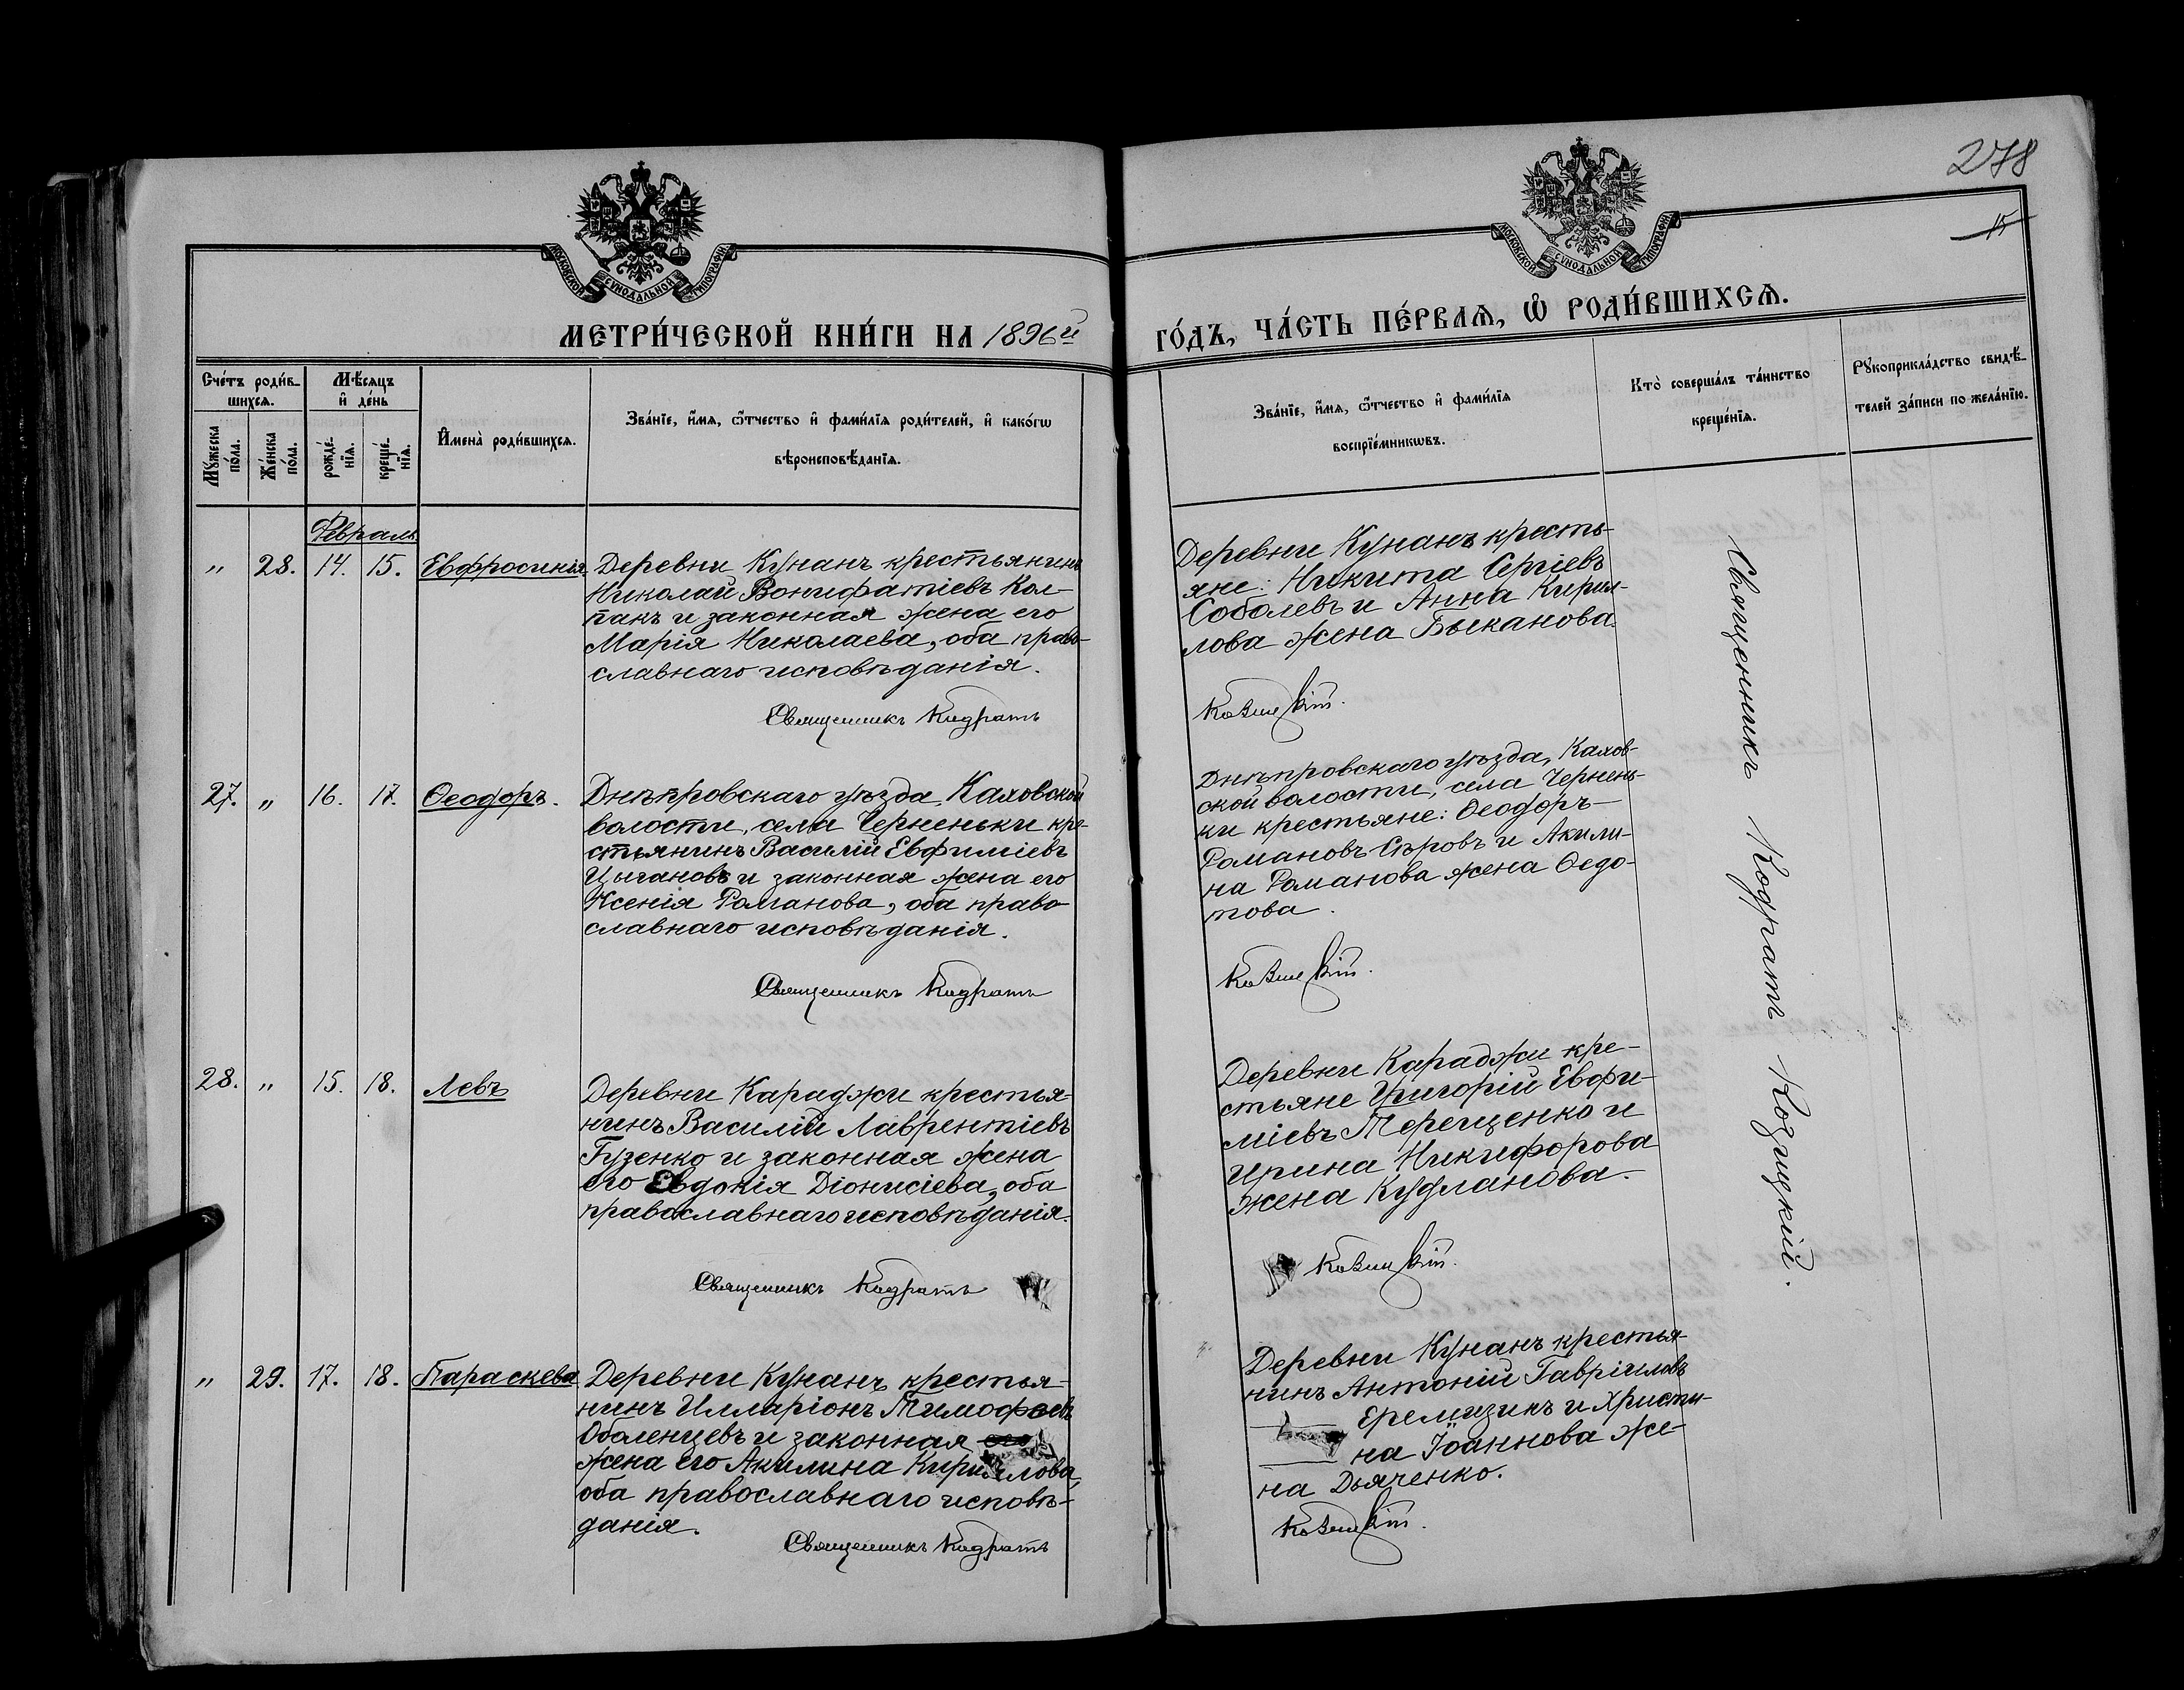 278
15
МОСКОВСКОЙ СѴНОДАЛЬНОЙ ТИПОГРАФІИ.
МОСКОВСКОЙ СѴНОДАЛЬНОЙ ТИПОГРАФІИ.
МЕТРИ́ЧЕСКОЙ КНИ́ГИ НА 1896й
ГО́ДЪ, ЧА́СТЬ ПЕ́РВАѦ, Ѡ҆ РОДИ́ВШИХСѦ.
Сче́тъ роди́в-
шихсѧ.
Мѣ́сѧцъ
и҆ де́нь
Мꙋ́жеска
по́ла.
Же́нска
по́ла.
рожде́-
нїѧ.
креще́-
нїѧ.
И҆мена̀ роди́вшихсѧ.
Зва́нїе, и҆́мѧ, ѻ҆́тчество и҆ фами́лїѧ роди́телей, и҆ како́гѡ
вѣроисповѣ́данїѧ.
Зва́нїе, и҆́мѧ, ѻ҆́тчество и҆ фами́лїѧ
воспрїе́мникѡвъ.
Кто̀ соверша́лъ та́инство
креще́нїѧ.
Рꙋкоприкла́дство свидѣ́-
телей за́писи по жела́нїю.
Февраль
" 28. 14. 15. Евфросинія
Деревни Кунанъ крестьянинъ
Николай Вонифатіевъ Кол-
пакъ и законная жена его
Марія Николаева, оба право-
славнаго исповѣданія.
Священникъ Кодратъ
Деревни Кунанъ кресть-
яне: Никита Сергіевъ
Соболевъ и Анна Кирил-
лова жена Быканова.
Козицкій.
27. " 16. 17. Ѳеодоръ.
Днѣпровскаго уѣзда, Каховской
волости, села Черненьки кре-
стьянинъ Василій Евфиміевъ
Цыгановъ и законная жена его
Ксенія Романова, оба право
славнаго исповѣданія.
Священникъ Кодратъ
Днѣпровскаго уѣзда, Кахов-
ской волости, села Чернень-
ки крестьяне: Ѳеодоръ
Романовъ Сѣровъ и Акили-
на Романова жена Ѳедо-
това.
Козицкій.
28. " 15. 18. Левъ
Деревни Караджи крестья-
нинъ Василій Лаврентіевъ
Гузенко и законная жена
его Евдокія Діонисіева, оба
православнаго исповѣданія.
Священникъ Кодратъ
Деревни Караджи кре-
стьяне Григорій Евфи-
міевъ Терещенко и
Ирина Никифорова
жена Кудланова.
Козицкій.
" 29. 17. 18. Параскева
Деревни Кунанъ крестья-
нинъ Илларіонъ Тимофеевъ
Оболенцевъ и законная
жена его Акилина Кириллова,
оба православнаго исповѣ-
данія.
Священникъ Кодратъ
Деревни Кунанъ крестья-
нинъ Антоній Гавріиловъ
Еремизинъ и Христи-
на Іоаннова же-
на Дьяченко.
Козицкій.
Священникъ Кодратъ Козицкій.